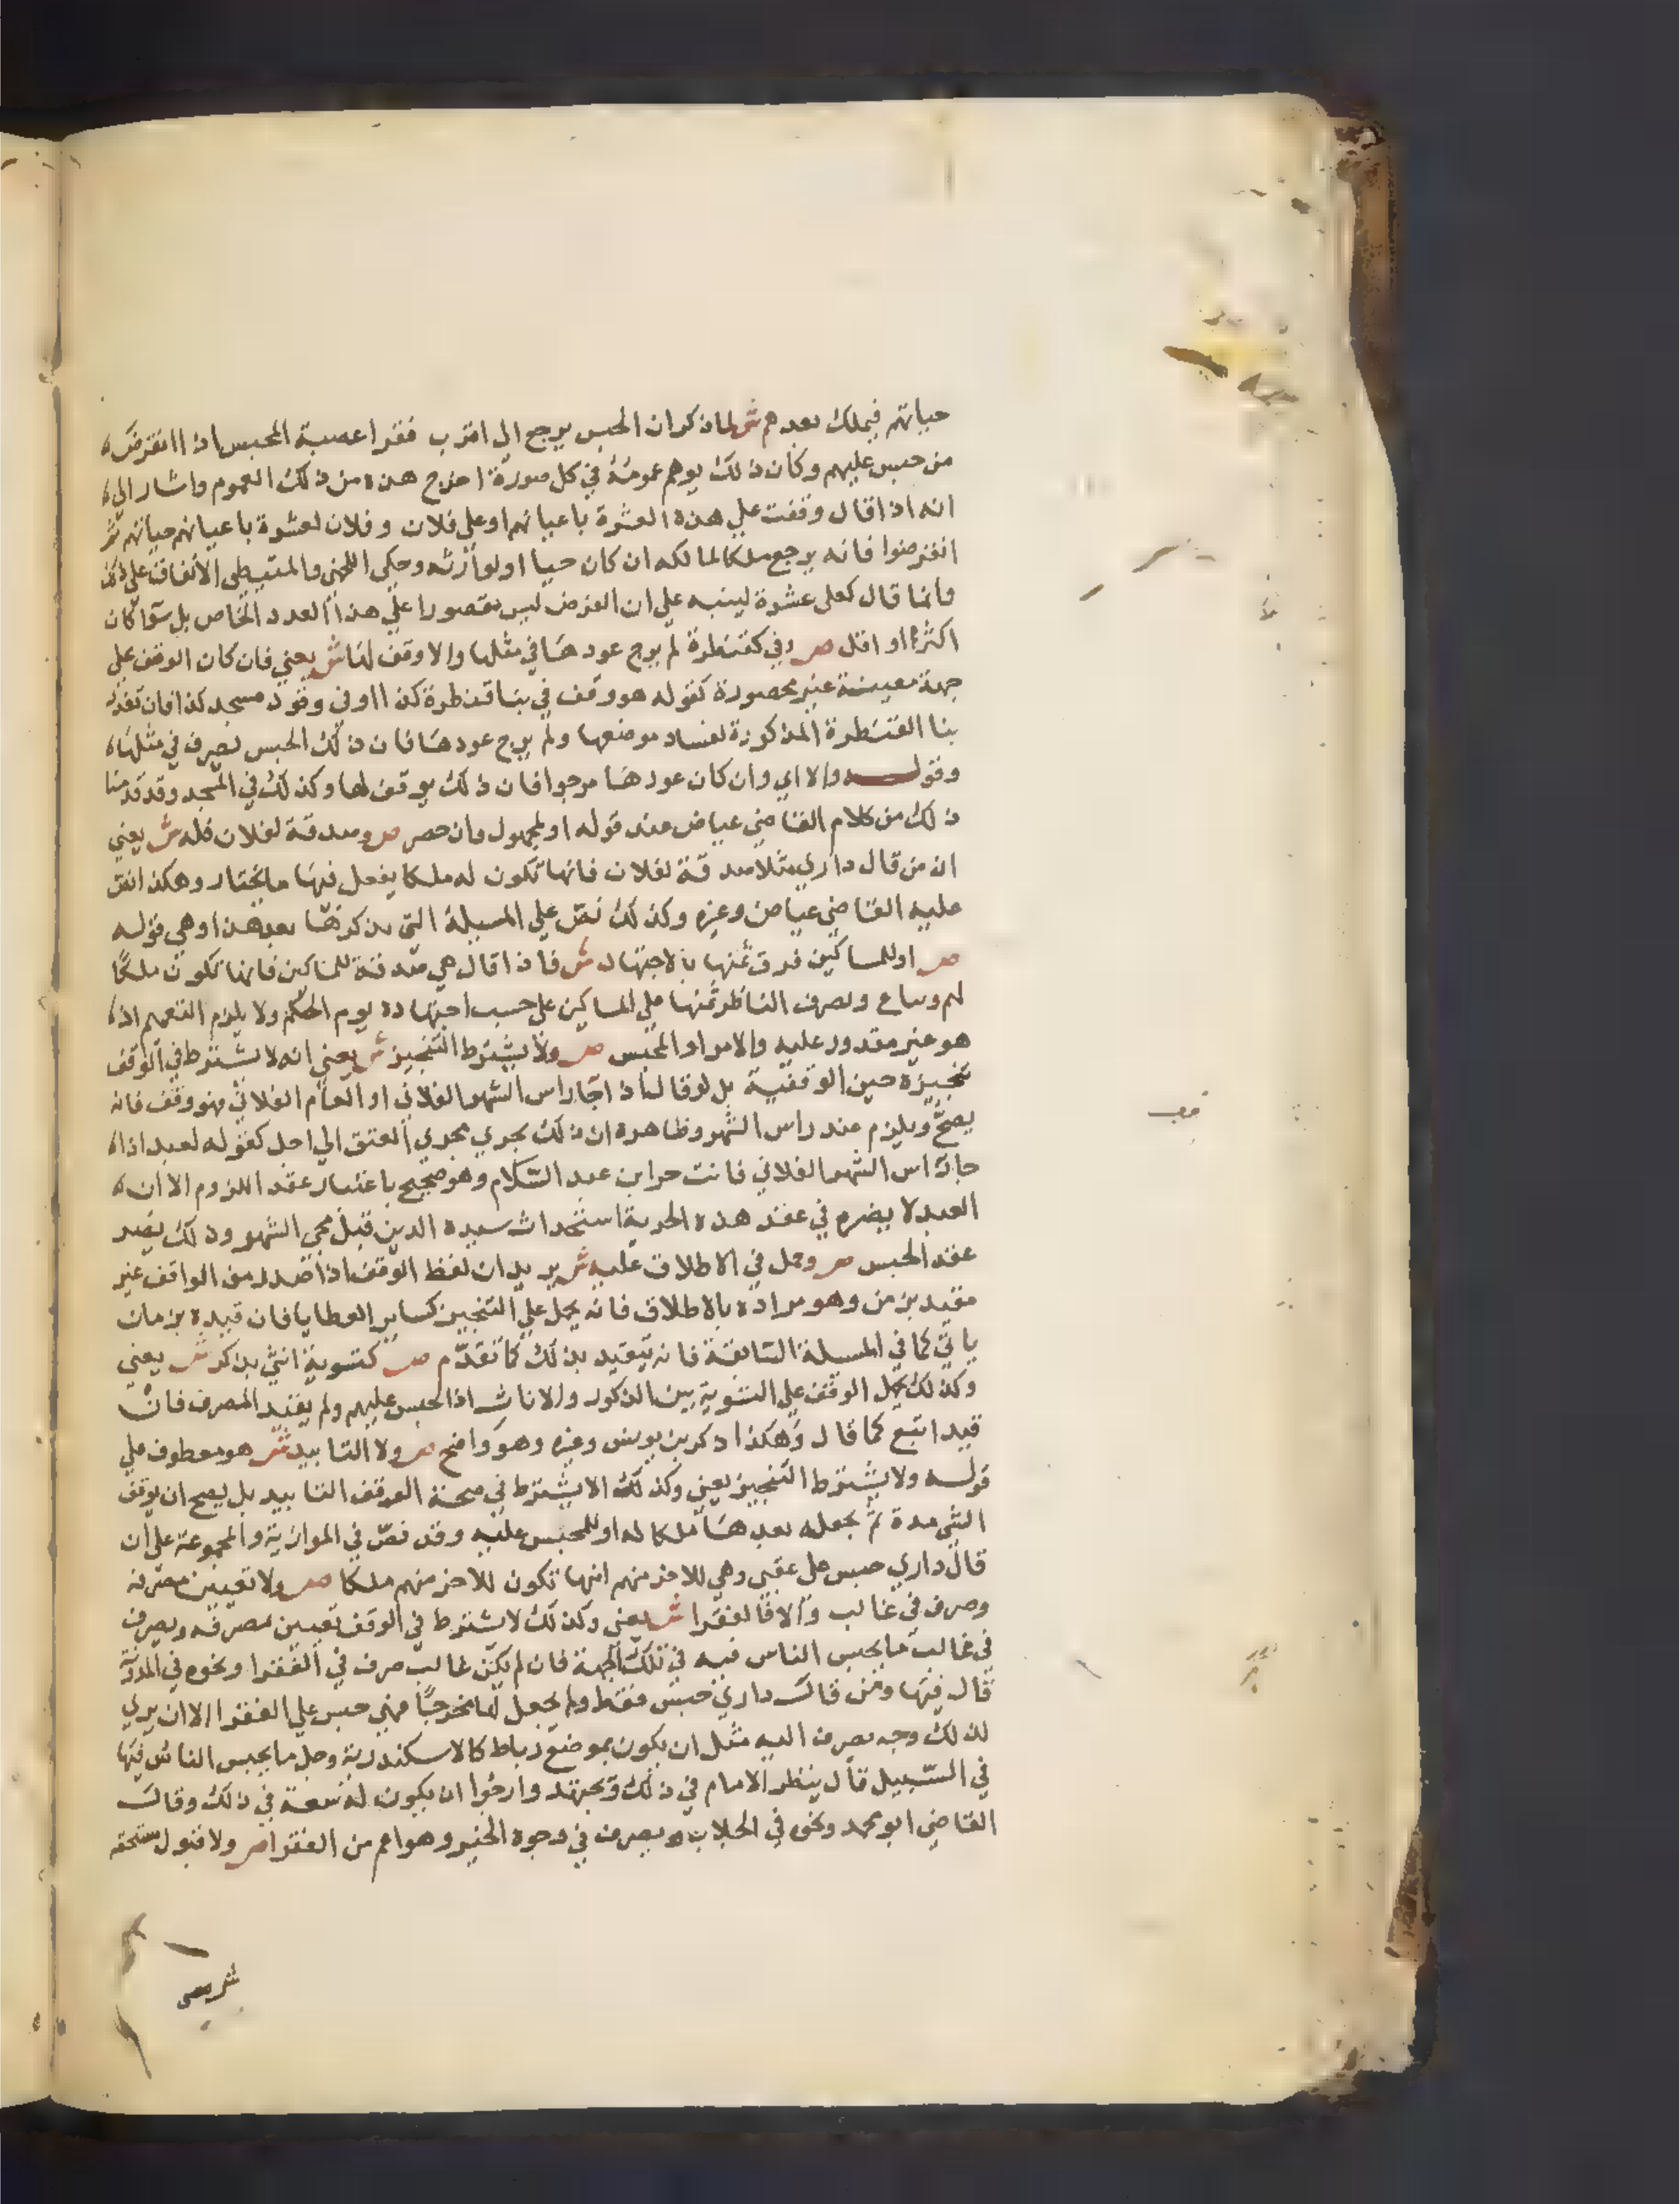 حياتهم فيملك بعدهم ش لما ذكر ان الحبس يرجع الي اقرب فقرا عصبة المحبس اذا انقرض
من حبس عليهم وكان ذلك يوهم عمومه في كل صورة اخرج هذه من ذلك العموم واشار الي
انه اذا قال وقفت علي هذه العشرة باعيانهم او علي فلان وفلان لعشرة باعيانهم حياتهم ثم
انقرضوا فانه يرجع ملكا لمالكه ان كان حيا او لوارثه وحكي اللخمي والمتيطي الاتفاق علي ذلك
وانما قال كعلي عشرة لينبه علي ان الفرض ليس مقصورا علي هذا العدد الخاص بل سوا كان
اكثر او اقل ص وفي كقنطرة لم يرج عودها في مثلها والا وقف لها ش يعني فان كان الوقف علي
جهة معينة غير محصورة كقوله هو وقف في بنا قنطرة كذا او في وقود مسجد كذا فان تعذر
بنا القنطرة المذكورة لفساد موضعها ولم يرج عودها فان ذلك الحبس يصرف في مثلها
وقوله والا اي وان كان عودها مرجوا فان ذلك يوقف لها وكذلك في المسجد وقد قدمنا
ذلك من كلام القاضي عياض عند قوله او لمجهول وان حصر ص وصدقة لفلان فله ش يعني
ان من قال داري مثلا صدقة لفلان فانها تكون له ملكا يفعل فيها ما يختار وهكذا نص
عليه القاضي عياض وغيره وكذلك نص علي المسيلة التي يذكرها بعد هذا وهي قوله
ص او للمساكين فرق ثمنها بالاجتهاد ش فاذا قال هي صدقة للمساكين فانها تكون ملكا
لهم وتباع ويصرف الناظر ثمنها علي المساكين علي حسب اجتهاده يوم الحكم ولا يلزم التعميم اذ
هو غير مقدور عليه والامراد المحبس ص ولا يشترط التنجيز ش يعني انه لا يشترط في الوقف
تنجيزه حين الوقفية بل لو قال اذا جا راس الشهر الفلاني او العام الفلاني فهو وقف فانه
يصح ويلزم عند راس الشهر وظاهره ان ذلك يجري مجري العتق الي اجل كقوله لعبده اذا
جا راس الشهر الفلاني فانت حر ابن عبد السلام وهو صحيح باعتبار عقد اللزوم الا ان
العبد لا يضره في عقد هذه الحرية استحداث سيده الدين قبل مجي الشهر وذلك يضر
عقد الحبس ص وحمل في الاطلاق عليه ش يريد ان لفظ الوقف اذا صدر من الواقف غير
مقيد بزمن وهو مراده بالاطلاق فانه يحمل علي التنجيز كساير العطايا فان قيده بزمان
ياتي كما في المسيلة السابقة فانه يتقيد بذلك كما تقدم ص كتسوية انثي بذكر ش يعني
وكذلك يحمل الوقف علي التسوية بين الذكور والاناث اذا حبس عليهم ولم يقيد المصرف فان
قيد اتبع كما قال وهكذا ذكر بن يونس وغيره وهو واضح ص ولا التابيد ش هو معطوف علي
قوله ولا يشترط التنجيز يعني وكذلك لا يشترط في صحة الوقف التابيد بل يصح ان يوقف
الشي مدة ثم يجعله بعدها ملكا له او للمحبس عليه وقد نص في الموازية والمجموعة علي ان
قال داري حبس علي عقبي وهي للاخر منهم انها تكون للاخر منهم ملكا ص ولا تعيين مصرفه
وصرف في غالب والا فالفقرا ش يعني وكذلك لا يشترط في الوقف تعيين مصرفه ويصرف
في غالب ما يحبس الناس فيه في تلك الجهة فان لم يكن غالب صرف في الفقرا ونحوه في المدونة
قال فيها ومن قال داري حبس فقط ولم يجعل لها مخرجا فهي حبس علي الفقرا الا ان يري
لذلك وجه يصرف اليه مثل ان يكون بموضع رباط كالاسكندرية وجل ما يحبس الناس فيها
في السبيل قال ينظر الامام في ذلك ويجتهد وارجوا ان يكون له سعة في ذلك وقال
القاضي ابو محمد ونحوه في الجلاب ويصرف في وجوه الخير وهو اعم من الفقرا ص ولا قبول مستحقه
قف